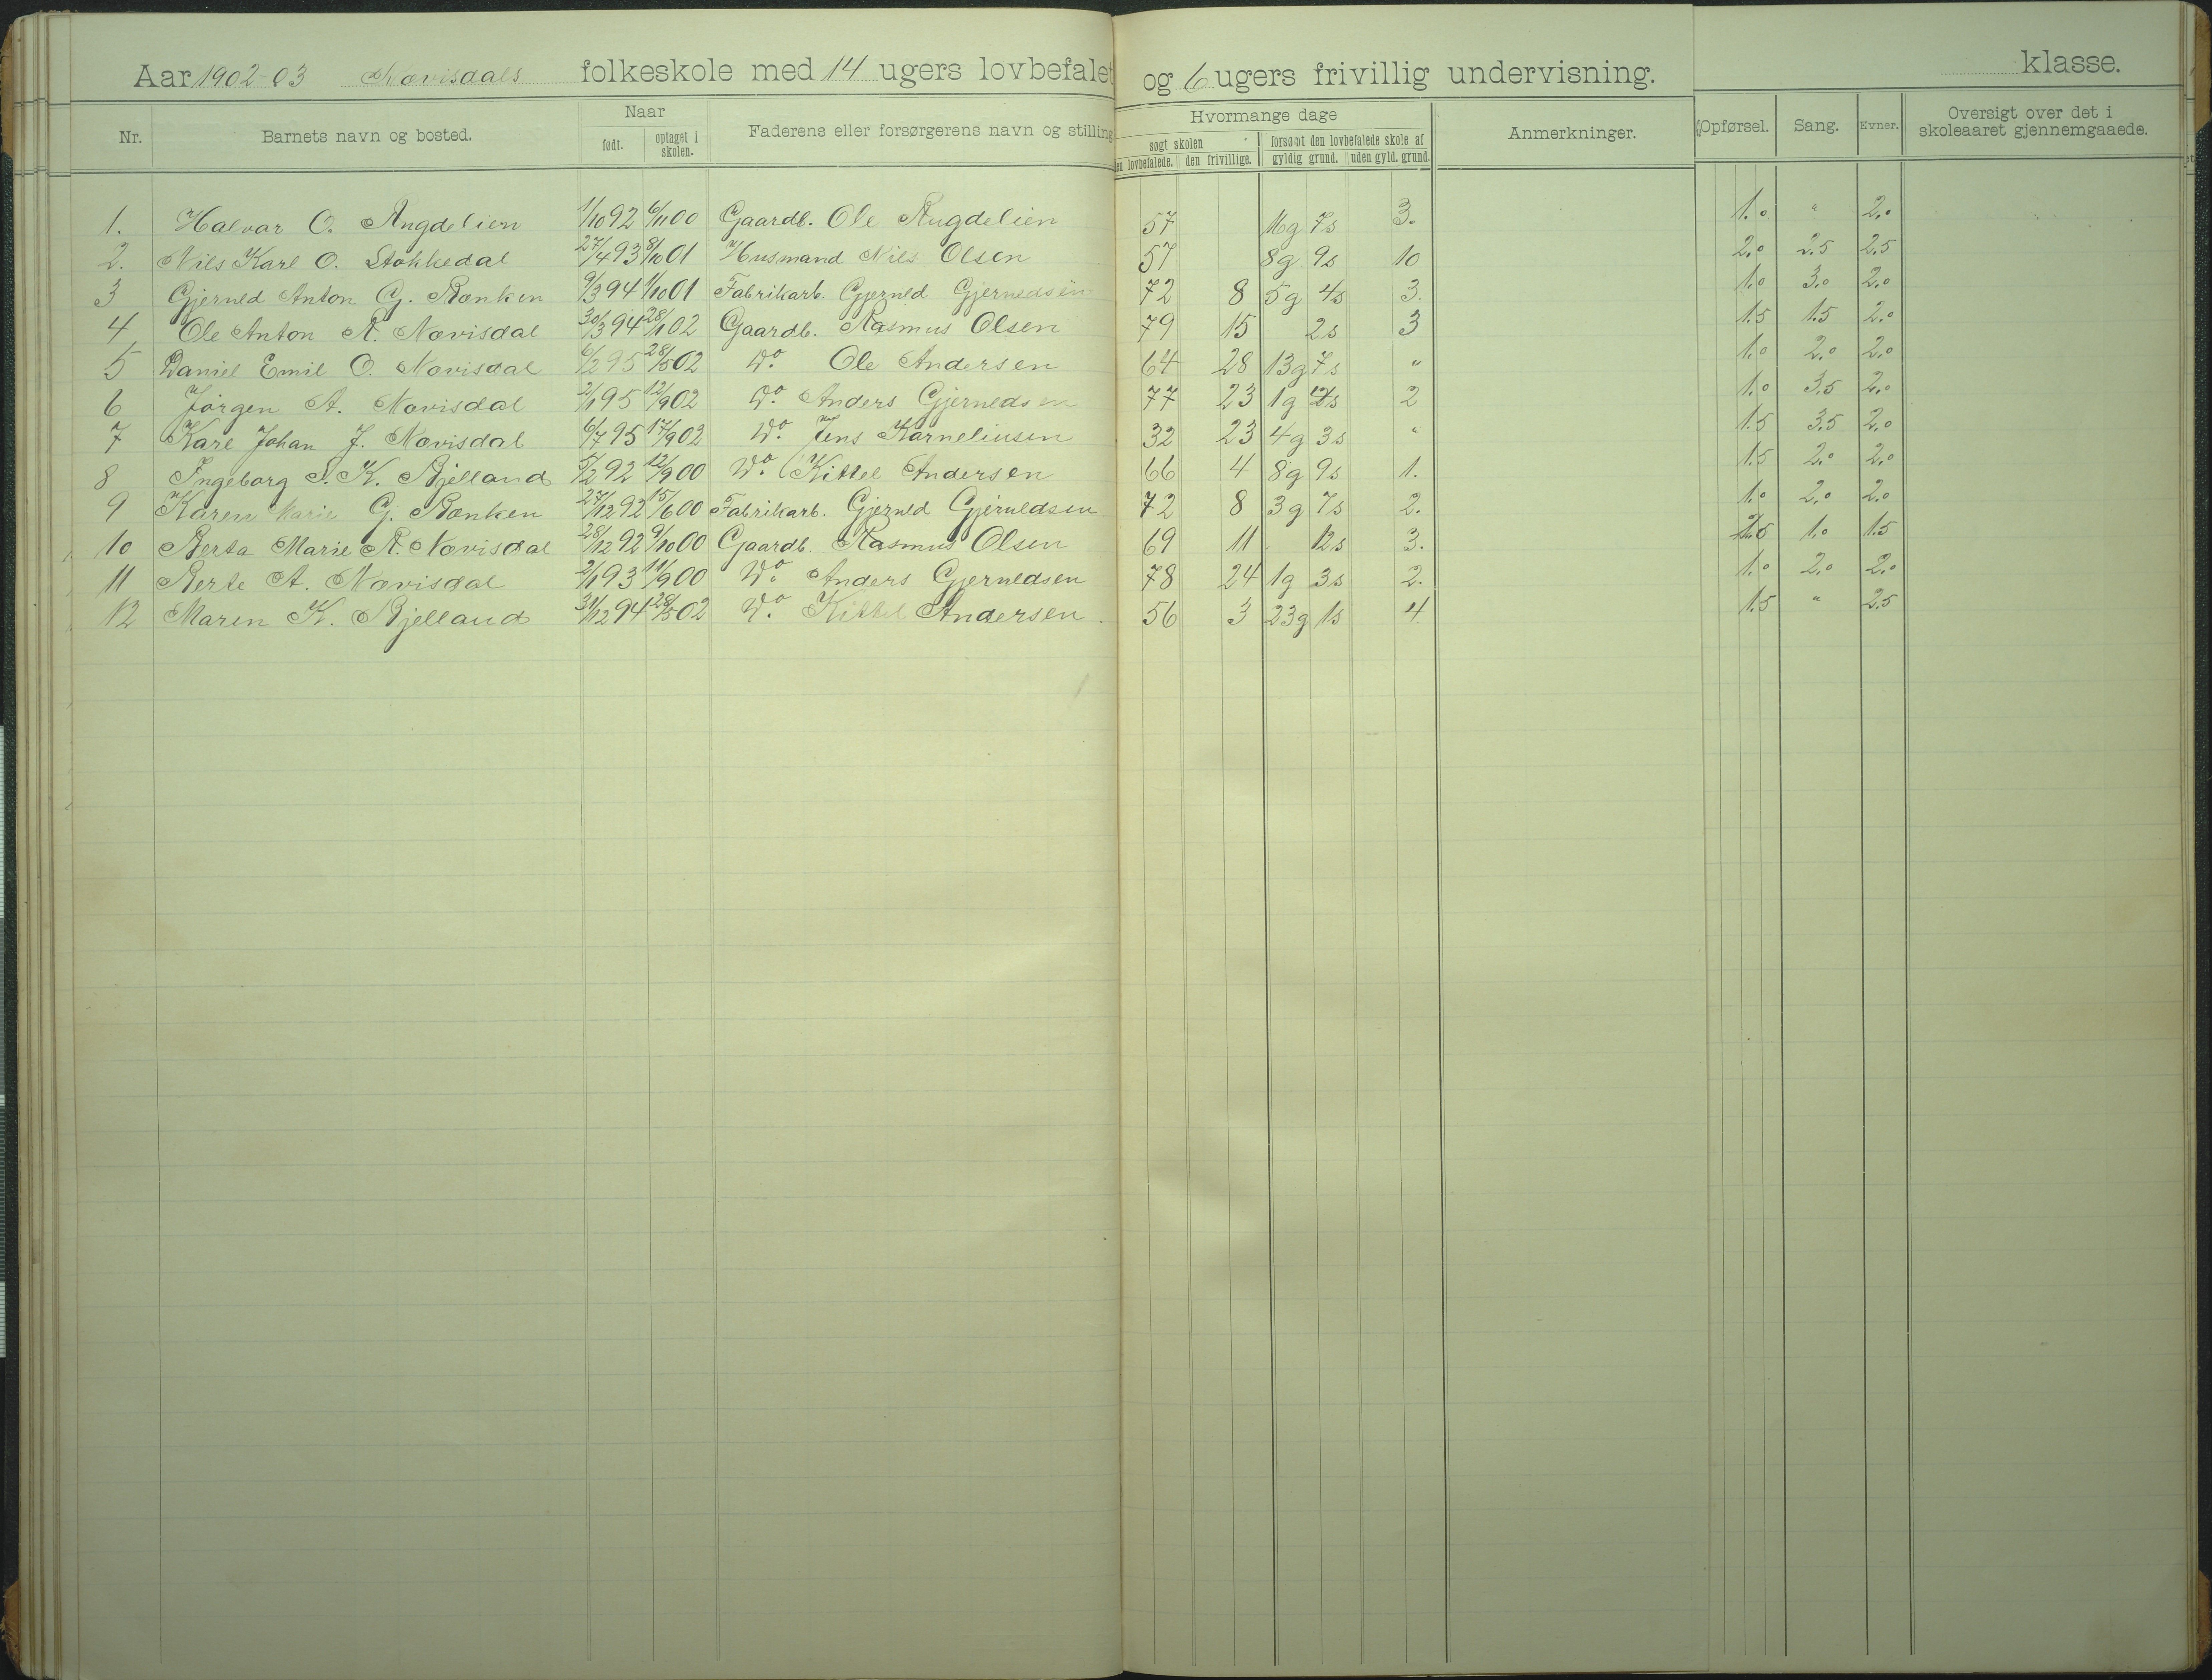 Aar 1902-03 Nævisdals folkeskole med 14 ugers lovbefalet og 6 ugers frivillig undervisning. klasse.
Nr. Barnets navn og bosted. Naar født. optaget i skolen. Faderens eller forsørgerens navn og stilling Hvormange dage søgt skolen den lovbefalede. den frivillige. forsømt den lovbefalede skole af gyldig grund. uden gyld. grund. Anmerkninger. Opførsel. Sang. Evner. Oversigt over det i skoleaaret gjennemgaaede.
1. Halvar O. Augdelien 1/10 92 6/11 00 Gaardb. Ole Augdelien 57 16g 7s 3. 1.0 " 2.0
2. Nils Karl O. Stokkedal 27/4 93 8/10 01 Husmand Nils Olsen 57 8g 9s 10 2.0 2.5 2.5
3 Gjerned Anton G. Rønken 9/3 94 1/10 01 Fabrikarb. Gjerned Gjernedsen 72 8 5g 4s 3. 1.0 3.0 2.0
4 Ole Anton R. Nævisdal 30/3 94 28/1 02 Gaardb. Rasmus Olsen 79 15 2s 3 1.5 1.5 2.0
5 Daniel Emil O. Nævisdal 6/2 95 28/5 02 Do. Ole Andersen 64 28 13g 7s " 1.0 2.0 2.0
6 Jørgen A. Nævisdal 2/1 95 12/9 02 Do. Anders Gjernedsen 77 23 1g 4s 2 1.0 3.5 2.0
7 Karl Johan J. Nævisdal 6/7 95 17/9 02 Do. Jens Karneliusen 32 23 4g 3s " 1.5 3.5 2.0
8 Ingeborg S. K. Bjelland 5/2 92 12/9 00 Do. Kittel Andersen 66 4 8g 9s 1. 1.5 2.0 2.0
9 Karen Marie G. Rønken 27/12 92 15/6 00 Fabrikarb. Gjerned Gjernedsen 72 8 3g 7s 2. 1.0 2.0 2.0
10 Berta Marie R. Nævisdal 28/12 92 9/10 00 Gaardb. Rasmus Olsen 69 11 12s 3. 1.0 1.5
11 Berte A. Nævisdal 2/1 93 11/9 00 Do. Anders Gjernedsen 78 24 1g 3s 2. 1.0 2.0 2.0
12 Maren K. Bjelland 31/12 94 28/5 02 Do. Kittel Andersen. 56 3 23g 1s 4 1.5 " 2.5